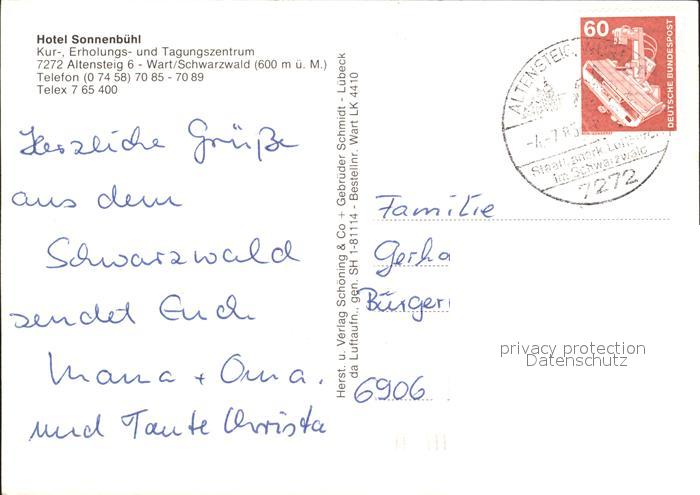 Hotel Sonnenbühl
Kur-, Erholungs- und Tagungszentrum
7272 Altensteig 6 - Wart/Schwarzwald (600 m ü. M.)
Telefon (0 74 58) 70 85 - 70 89
Telex 7 65 400
Herzliche Grüße
aus dem
Schwarzwald
sendet Euch
Mama + Oma.
und Tante Christa
Herst. u. Verlag Schöning & Co + Gebrüder Schmidt - Lübeck
da Luftaufn., gen. SH 1-81114 - Bestellnr. Wart LK 4410
60
DEUTSCHE BUNDESPOST
ALTENSTEIG
Staatl. anerk.
im Schwarzwald
7272
Familie
Gerha
Bürger
6906
privacy protection
Datenschutz